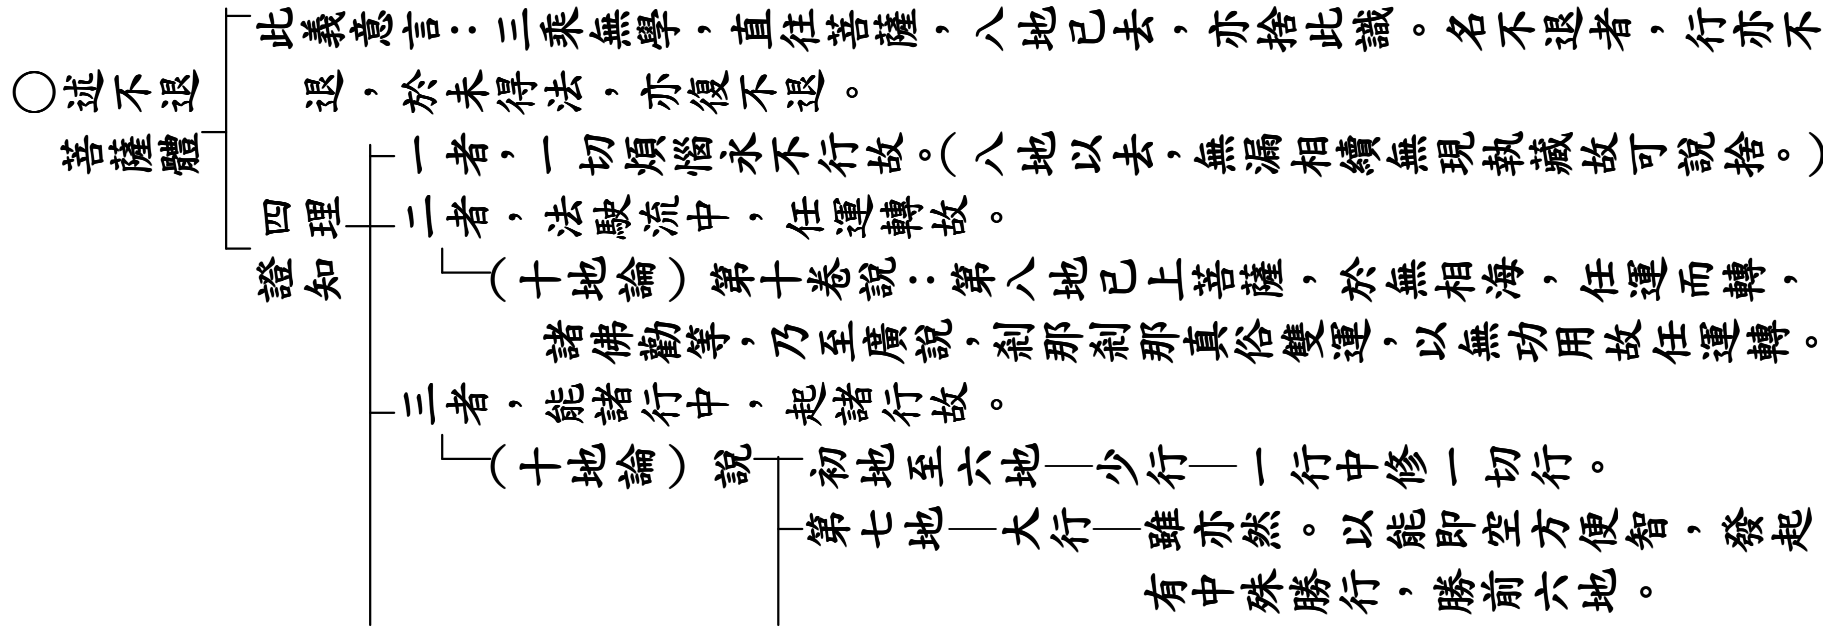 ○述不退
菩薩體
此義意言：三乘無學，直往菩薩，八地已去，亦捨此識。名不退者，行亦不
退，於未得法，亦復不退。
四理
證知
一者，一切煩惱永不行故。（八地以去，無漏相續無現執藏故可說捨。）
二者，法駛流中，任運轉故。
（十地論）第十卷說：第八地已上菩薩，於無相海，任運而轉，
諸佛勸等，乃至廣說，剎那剎那真俗雙運，以無功用故任運轉。
三者，能諸行中，起諸行故。
（十地論）說
初地至六地—少行—一行中修一切行。
第七地—大行—雖亦然。以能即空方便智，發起
有中殊勝行，勝前六地。